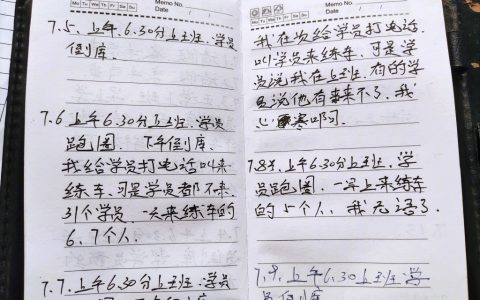 Memo No.
Mo Tu We Th Fr Sa Su
Date
7.5、上午6.30分上班、学员
倒库、
7.6上午6.30分上班、学员
跑圈、下午倒库、
我给学员打电话叫来
练车、可是学员都不来、
31个学员、一天来练车的
6、7个人、
7.7、上午6.30分上班、学员
Memo No.
Mo Tu We Th Fr Sa Su
Date
我在次给学员打电话
叫学员来练车、可是学
员说我在上班、有的学
员说他有来不了、我
心寒啊、
7.8号、上午6.30分上班、学
员跑圈、一早上来练车
的5个人、我无语了、
7.9、上午6.30上班学
员倒库